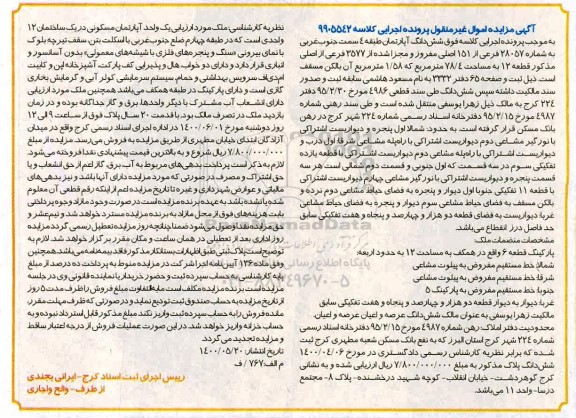 آگهی مزایده اموال غیرمنقول پرونده اجرایی کلاسه ۹۹۰۵۵۴۲
به موجب پرونده اجرایی کلاسه فوق شش‌دانگ آپارتمان طبقه ۴ سمت جنوب‌غربی
به شماره ۲۸۰۵۷ فرعی از ۱۵۱ اصلی مفروز و مجزا شده از ۳۵۷۷ فرعی از اصلی
مذکور قطعه ۱۲ به مساحت ۷۸/۴ مترمربع که ۱/۵۸ مترمربع آن بالکن مسقف
است. ذیل ثبت و صفحه ۶۵ دفتر ۳۳۳۲ به نام مسعود هاشمی سابقه ثبت و صدور
سند مالکیت داشته سپس شش‌دانگ طی سند قطعی ۴۹۸۶ مورخ ۹۵/۲/۳۰ دفتر
۲۲۴ کرج به مالک ذیل زهرا یوسفی منتقل شده است و طی سند رهنی شماره
۴۹۸۷ مورخ ۹۵/۲/۱۵ دفترخانه اسناد رسمی شماره ۲۲۴ شهر کرج در رهن
بانک مسکن قرار گرفته است. به حدود: شمالا اول پنجره و دیواریست اشتراکی
با نورگیر مشاعی دوم دیواریست اشتراکی با راه‌پله مشاعی سوم در که اول درب و
دیواریست اشتراکی با راه‌پله مشاعی دوم دیواریست اشتراکی با قطعه یازده
تفکیکی سوم در سه قسمت که اول جنوبی و قسمت دوم شمالی است هر سه
قسمت پنجره و دیواریست اشتراکی با نورگیر مشاعی چهارم دیواریست اشتراکی
با قطعه ۱۱ تفکیکی جنوبا اول دیوار و پنجره به فضای حیاط مشاعی دوم نرده و
بالکن مسقف به فضای حیاط مشاعی سوم دیوار و پنجره به فضای حیاط مشاعی
غربا دیواریست به فضای قطعه دو هزار و چهارصد و پنجاه و هفت تفکیکی سابق
حد فاصل درز انقطاع می‌باشد.
مشخصات منضمات ملک:
پارکینگ قطعه ۶ واقع در همکف به مساحت ۱۲ به حدود اربعه:
شمالا خط مستقیم مفروض به پیلوت مشاعی
شرقا خط مستقیم مفروض به پیلوت مشاعی
جنوبا خط مستقیم مفروض به پارکینگ ۵
غربا دیوار به دیوار قطعه دو هزار و چهارصد و پنجاه و هفت تفکیکی سابق
مالکیت زهرا یوسفی به عنوان مالک شش‌دانگ عرصه و اعیان عرصه و اعیان.
محدودیت دفتر املاک رهن شماره ۴۹۸۷ مورخ ۹۵/۲/۱۵ دفترخانه اسناد رسمی
شماره ۲۲۴ شهر کرج استان البرز که به نفع بانک مسکن شعبه مطهری کرج ثبت
شده که برابر نظریه کارشناس رسمی دادگستری در مورخ ۱۴۰۰/۰۴/۰۶
شش‌دانگ پلاک مذکور به مبلغ ۷/۸۰۰/۰۰۰/۰۰۰ ریال ارزیابی شده و به نشانی
کرج گوهردشت- خیابان انقلاب- کوچه شهید درخشنده- پلاک ۸- مجتمع
درسا- واحد ۱۱ می‌باشد.
نظریه کارشناسی: ملک مورد ارزیابی یک واحد آپارتمان مسکونی در یک ساختمان ۱۲
واحدی است که در طبقه چهارم ضلع جنوب‌غربی با اسکلت بتن، سقف تیرچه بلوک
با نمای بیرونی (سنگ و پنجره‌های فلزی با شیشه‌های معمولی) بدون آسانسور و
انباری قرار دارد و دارای دو خواب، هال و پذیرایی کف پارکت، آشپزخانه اپن و کابینت
ام‌دی‌اف سرویس بهداشتی و حمام، سیستم سرمایشی کولر آبی و گرمایشی بخاری
گازی است و دارای پارکینگ در طبقه همکف می‌باشد همچنین ملک مورد ارزیابی
دارای انشعاب آب مشترک با دیگر واحدها، برق و گاز جداگانه بوده و در زمان
بازدید ملک در تصرف مالک بود. با قدمت ۲۰ سال پلاک فوق از ساعت ۹ الی ۱۲
روز دوشنبه مورخ ۱۴۰۰/۰۶/۰۱ در اداره اجرای اسناد رسمی کرج واقع در میدان
آزادگان ابتدای خیابان مطهری از طریق مزایده به فروش می‌رسد. مزایده از مبلغ
۷/۸۰۰/۰۰۰/۰۰۰ ریال شروع و به بالاترین قیمت پیشنهادی نقدا فروخته می‌شود.
لازم به ذکر است پرداخت بدهی‌های مربوط به آب، برق، گاز اعم از حق انشعاب و یا
حق اشتراک و مصرف در صورتی که مورد مزایده دارای آنها باشد و نیز بدهی‌های
مالیاتی و عوارض شهرداری و غیره تا تاریخ مزایده اعم از اینکه رقم قطعی آن معلوم
شده یا نشده باشد به عهده برنده مزایده است در صورت وجود مازاد وجوه پرداختی
بابت هزینه‌های فوق از محل مازاد به برنده مزایده مسترد خواهد شد و نیم‌عشر و
حق مزایده نقدا وصول می‌شود ضمنا چنانچه روز مزایده تعطیل رسمی گردد مزایده
روز اداری بعد از تعطیلی در همان ساعت و مکان مقرر برگزار خواهد شد. لازم به
توضیح است پلاک ثبتی طبق اظهارات بستانکار مذکور فاقد بیمه‌نامه می‌باشد. همچنین
وفق ماده ۱۳۶ آیین‌نامه اجرا شرکت در مزایده منوط به پرداخت ده درصد از مبلغ
پایه کارشناسی به حساب سپرده ثبت و حضور خریدار یا نماینده قانونی وی در جلسه
مزایده است. برنده مزایده مکلف است مابه‌التفاوت مبلغ فروش را ظرف مدت ۵ روز
از تاریخ مزایده به حساب صندوق ثبت تودیع نماید و در صورتی که ظرف مهلت مقرر،
مانده فروش را به حساب سپرده ثبت واریز نکند مبلغ مذکور قابل استرداد نبوده و به
حساب خزانه واریز خواهد شد. در این صورت عملیات فروش از درجه اعتبار ساقط
و مزایده تجدید می‌گردد.
تاریخ انتشار: ۱۴۰۰/۰۵/۲۰
م الف: ۷۶۷/ ف
رییس اجرای ثبت اسناد کرج- ایرانی بجندی
از طرف- والح واجاری